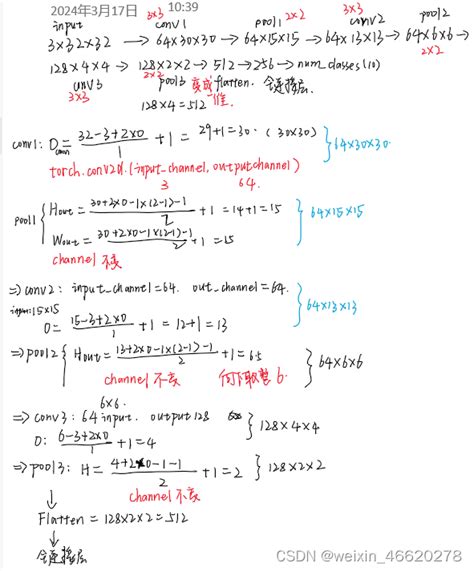 2024年3月17日 10:39
3×3 2×2 3×3
input conv1 pool1 conv2 pool2
3×32×32 → 64×30×30 → 64×15×15 → 64×13×13 → 64×6×6 →
2×2
128×4×4 → 128×2×2 → 512 → 256 → num_classes(10)
conv3 2×2 pool3 变成 flatten. 全连接层
3×3 128×4=512 一维.
conv1: O = 32-3+2×0 / 1 + 1 = 29+1=30. (30×30) } 64×30×30.
torch.conv2d.(input_channel, outputchannel)
3 64.
pool1 { Hout = 30+2×0-1×(2-1)-1 / 2 + 1 = 14+1=15 } 64×15×15
Wout = 30+2×0-1×(2-1)-1 / 2 + 1 = 15
channel 不变
⇒ conv2: input_channel=64. out_channel=64. } 64×13×13
input:15×15
O = 15-3+2×0 / 1 + 1 = 12+1=13
⇒ pool2 { Hout = 13+2×0-1×(2-1)-1 / 2 + 1 = 6.5 } 64×6×6
channel 不变 向下取整 6.
6×6.
⇒ conv3: 64 input. output 128 } 128×4×4
O: 6-3+2×0 / 1 + 1 = 4
⇒ pool3: H = 4+2×0-1-1 / 2 + 1 = 2 } 128×2×2
channel 不变
↓
Flatten = 128×2×2=512
↓
全连接层
CSDN @weixin_46620278